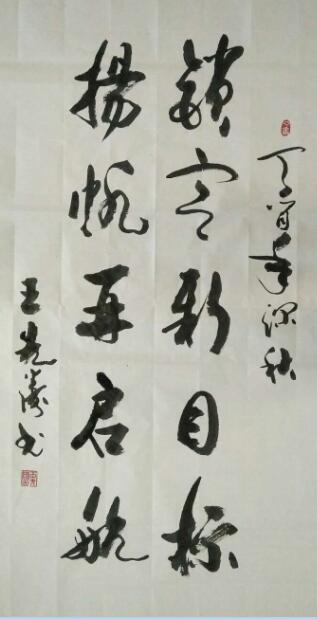 丁酉年深秋
锁定新目标
揚帆再启航
王先涛书